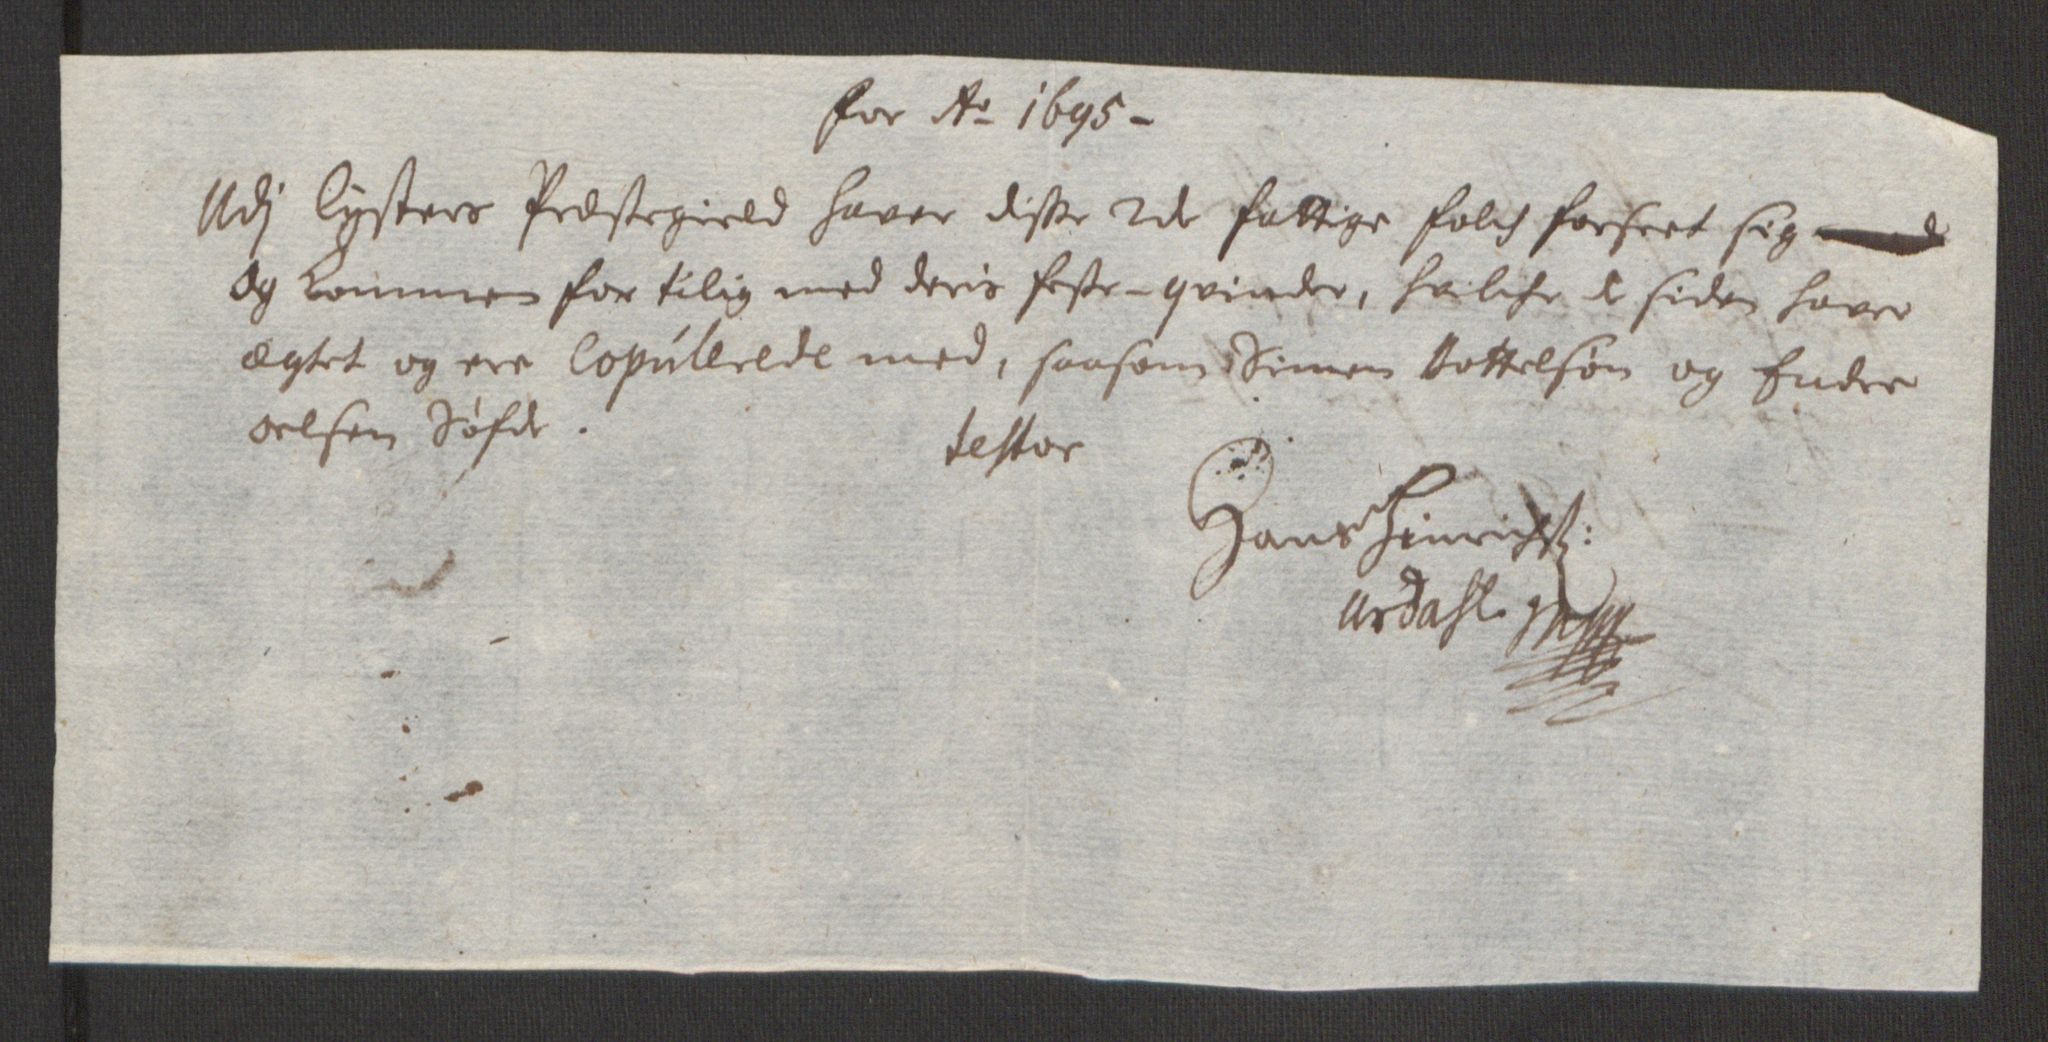 for Ao 1695 -
Udj Lysters Præstegield haver disse 2de fattige folch forseet sig
og kommen for tilig med deris feste-qvinder, hvilche de siden haver
ægtet og ere Copullerede med, saasom Simen Bottelsøn og Endre
oelsen Døsde.
testor
Hans Hinrichs:
Ardahl